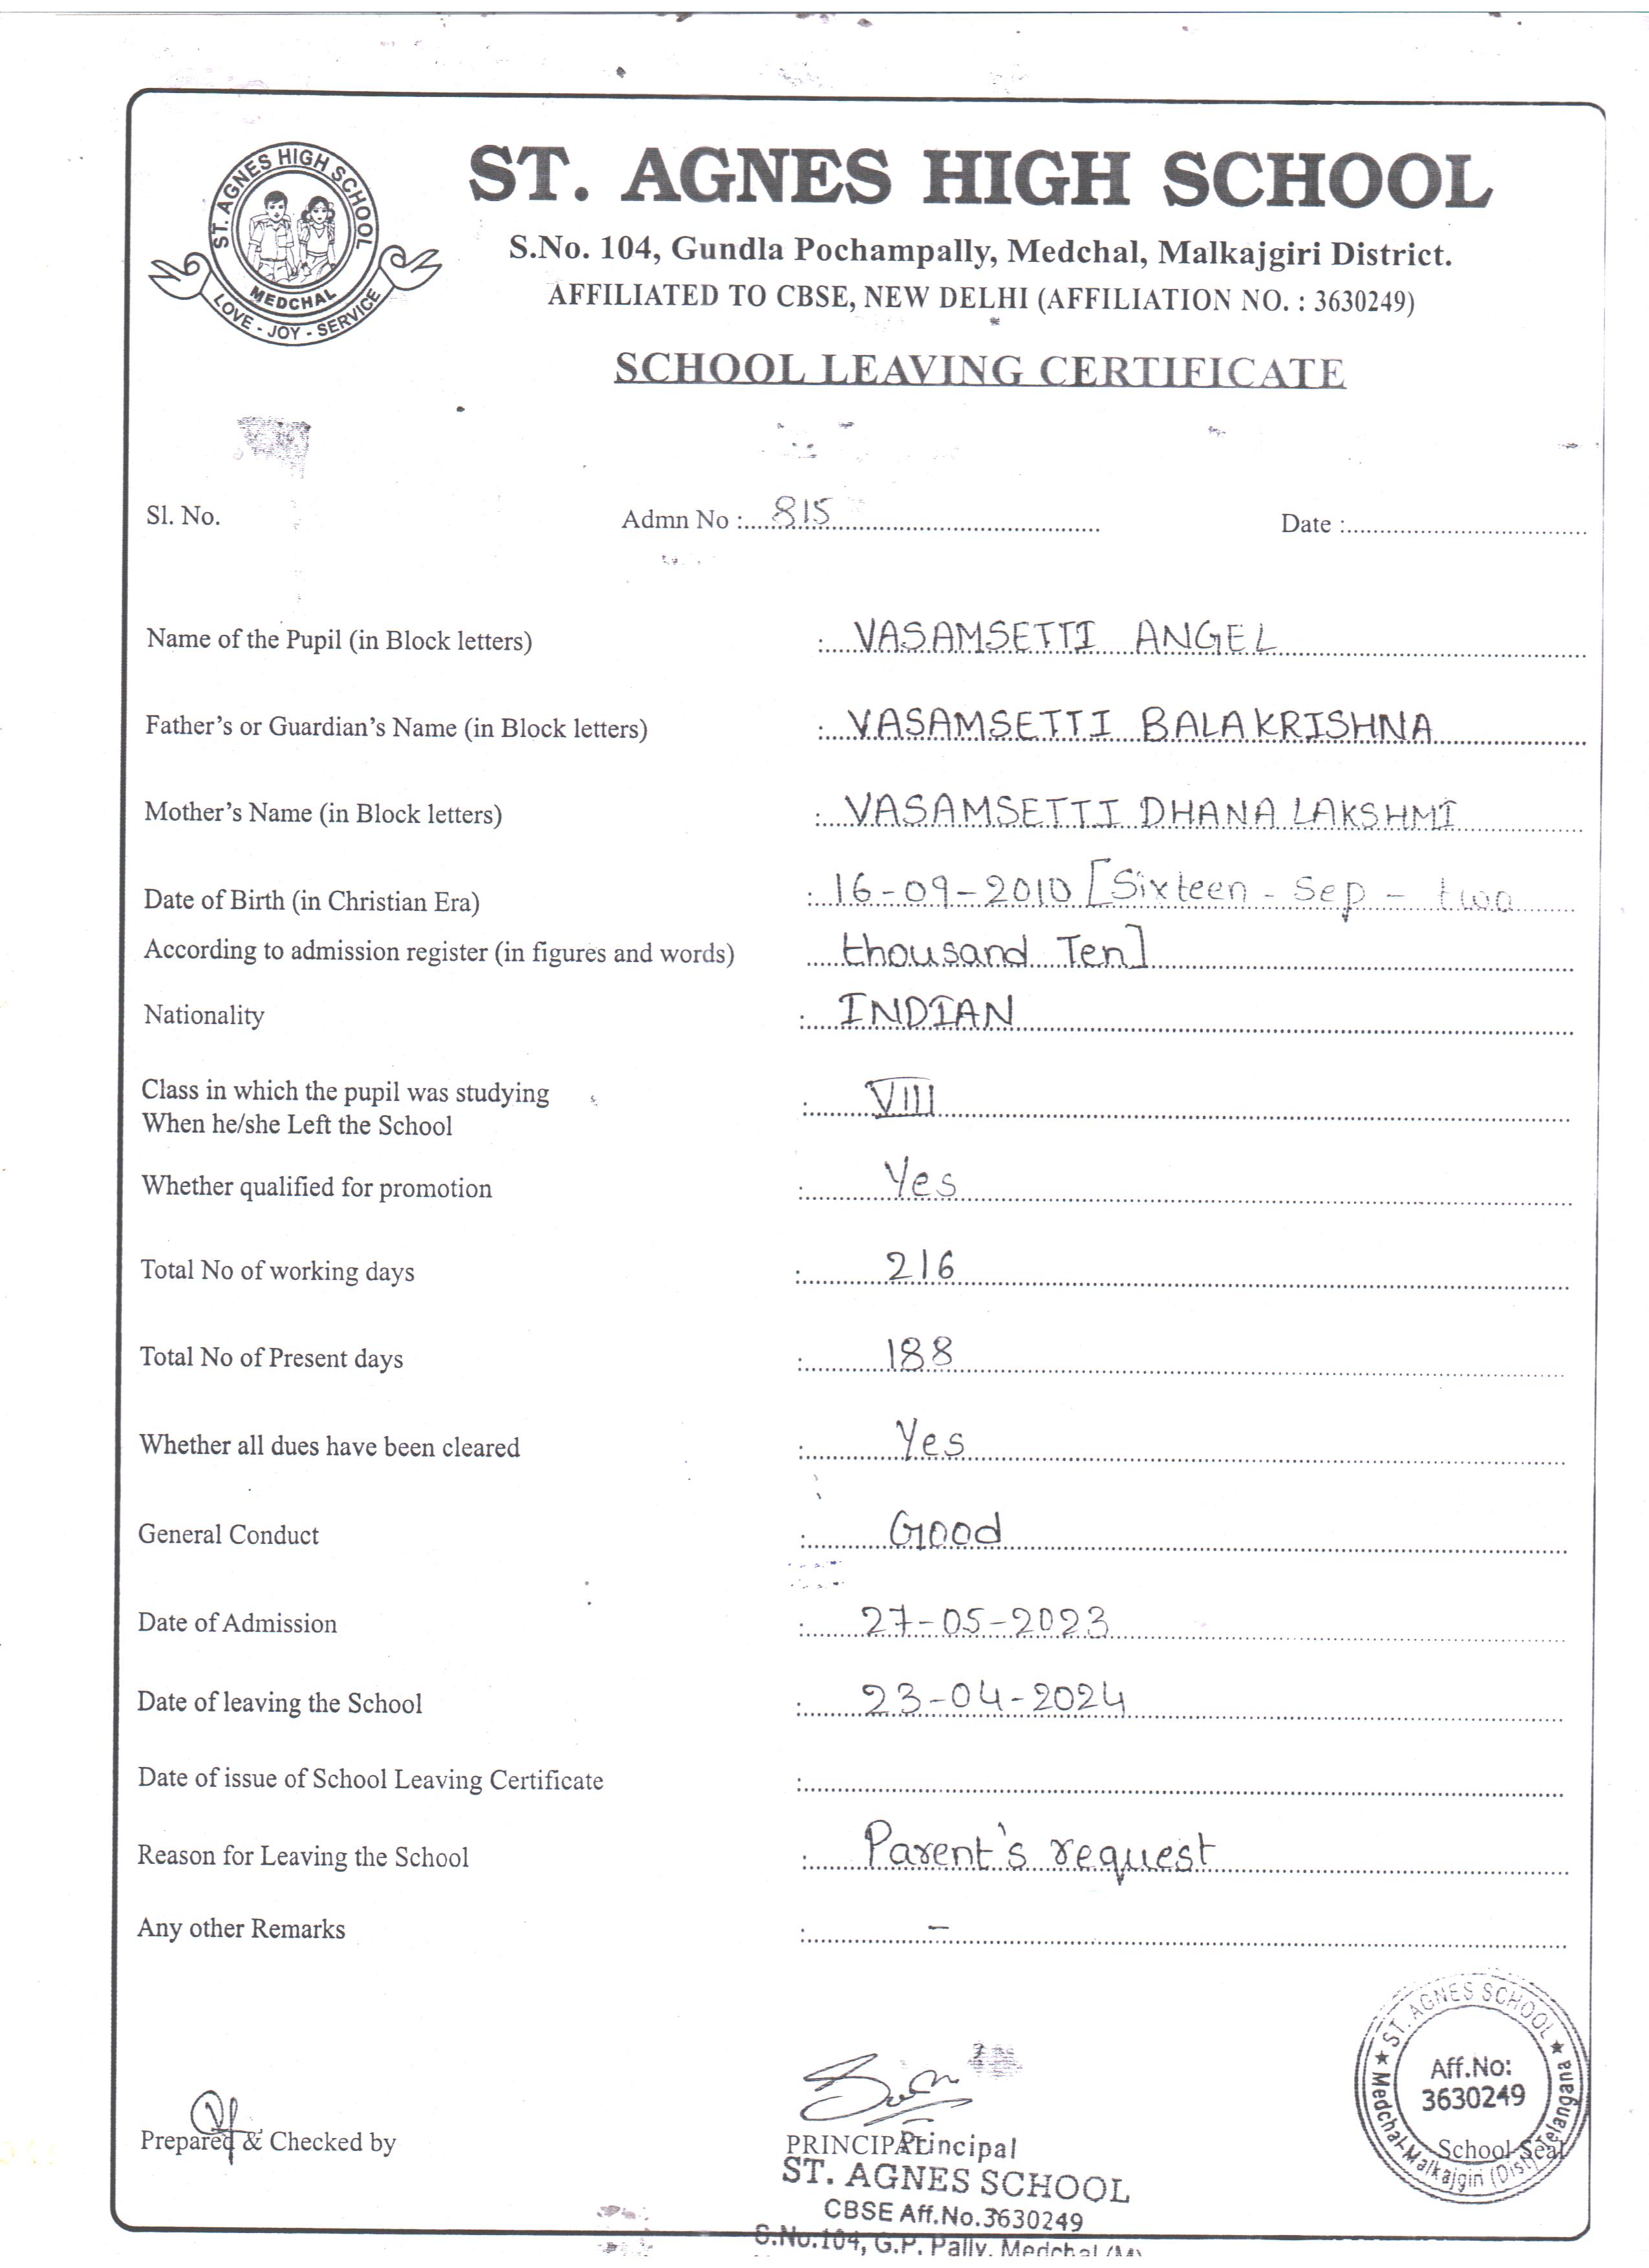 ST. AGNES HIGH SCHOOL
MEDCHAL
LOVE - JOY - SERVICE
ST. AGNES HIGH SCHOOL
S.No. 104, Gundla Pochampally, Medchal, Malkajgiri District.
AFFILIATED TO CBSE, NEW DELHI (AFFILIATION NO. : 3630249)
SCHOOL LEAVING CERTIFICATE
Sl. No. Admn No : 815 Date :
Name of the Pupil (in Block letters) : VASAMSETTI ANGEL
Father's or Guardian's Name (in Block letters) : VASAMSETTI BALAKRISHNA
Mother's Name (in Block letters) : VASAMSETTI DHANA LAKSHMI
Date of Birth (in Christian Era) : 16-09-2010 [Sixteen - Sep - two
According to admission register (in figures and words) thousand Ten]
Nationality : INDIAN
Class in which the pupil was studying
When he/she Left the School : VIII
Whether qualified for promotion : Yes
Total No of working days : 216
Total No of Present days : 188
Whether all dues have been cleared : Yes
General Conduct : Good
Date of Admission : 27-05-2023
Date of leaving the School : 23-04-2024
Date of issue of School Leaving Certificate :
Reason for Leaving the School : Parent's request
Any other Remarks : -
ST. AGNES SCHOOL
Aff.No:
3630249
Medchal-Malkajgiri (Dist) Telangana
Prepared & Checked by PRINCIPAL Principal School Seal
ST. AGNES SCHOOL
CBSE Aff.No.3630249
S.No:104, G.P. Pally, Medchal (M)